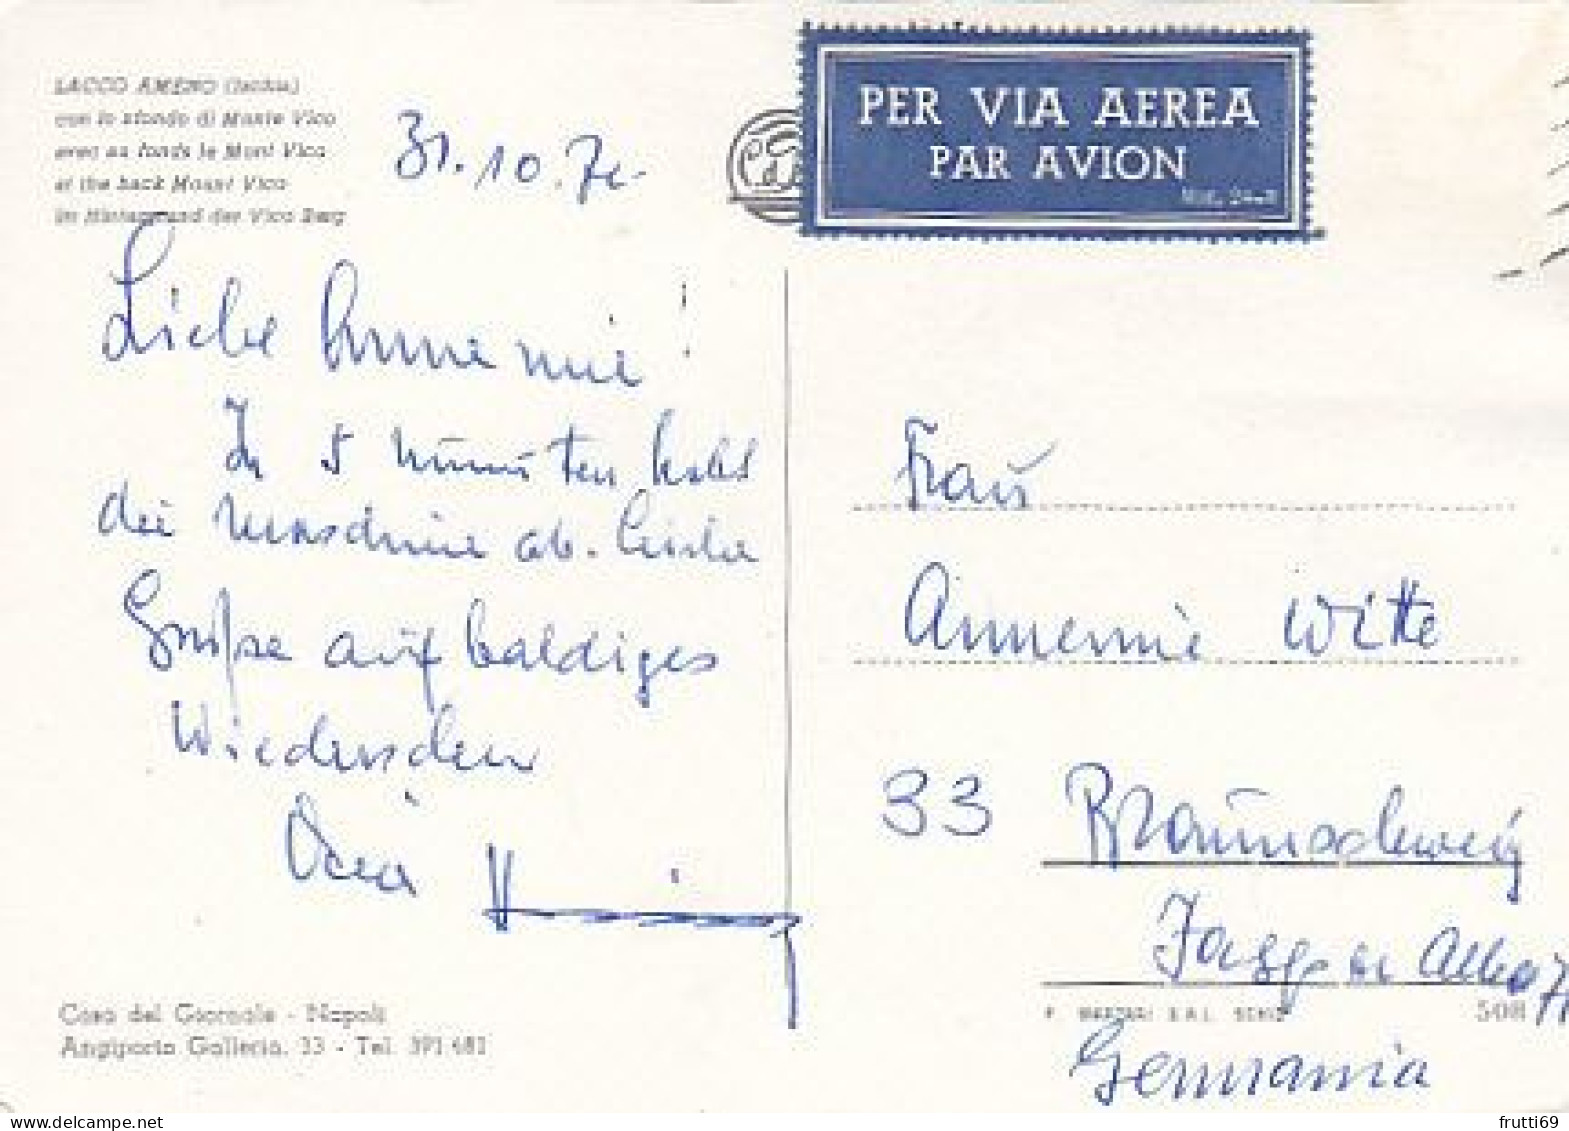 LACCO AMENO (Ischia)
con lo sfondo di Monte Vico
avec au fonds le Mont Vico
at the back Mount Vico
im Hintergrund der Vico Berg
31.10.
PER VIA AEREA
PAR AVION
Mod. 24-B
Liebe Annemie!
In 5 Minuten hebt
die Maschine ab. Liebe
Grüße auf baldiges
Wiedersehen
Dein
Frau
Annemie Witte
33 Braunschweig
Jasperallee 7
Germania
Casa del Giornale - Napoli
Angiporto Galleria, 33 - Tel. 391 681
508
frutti69